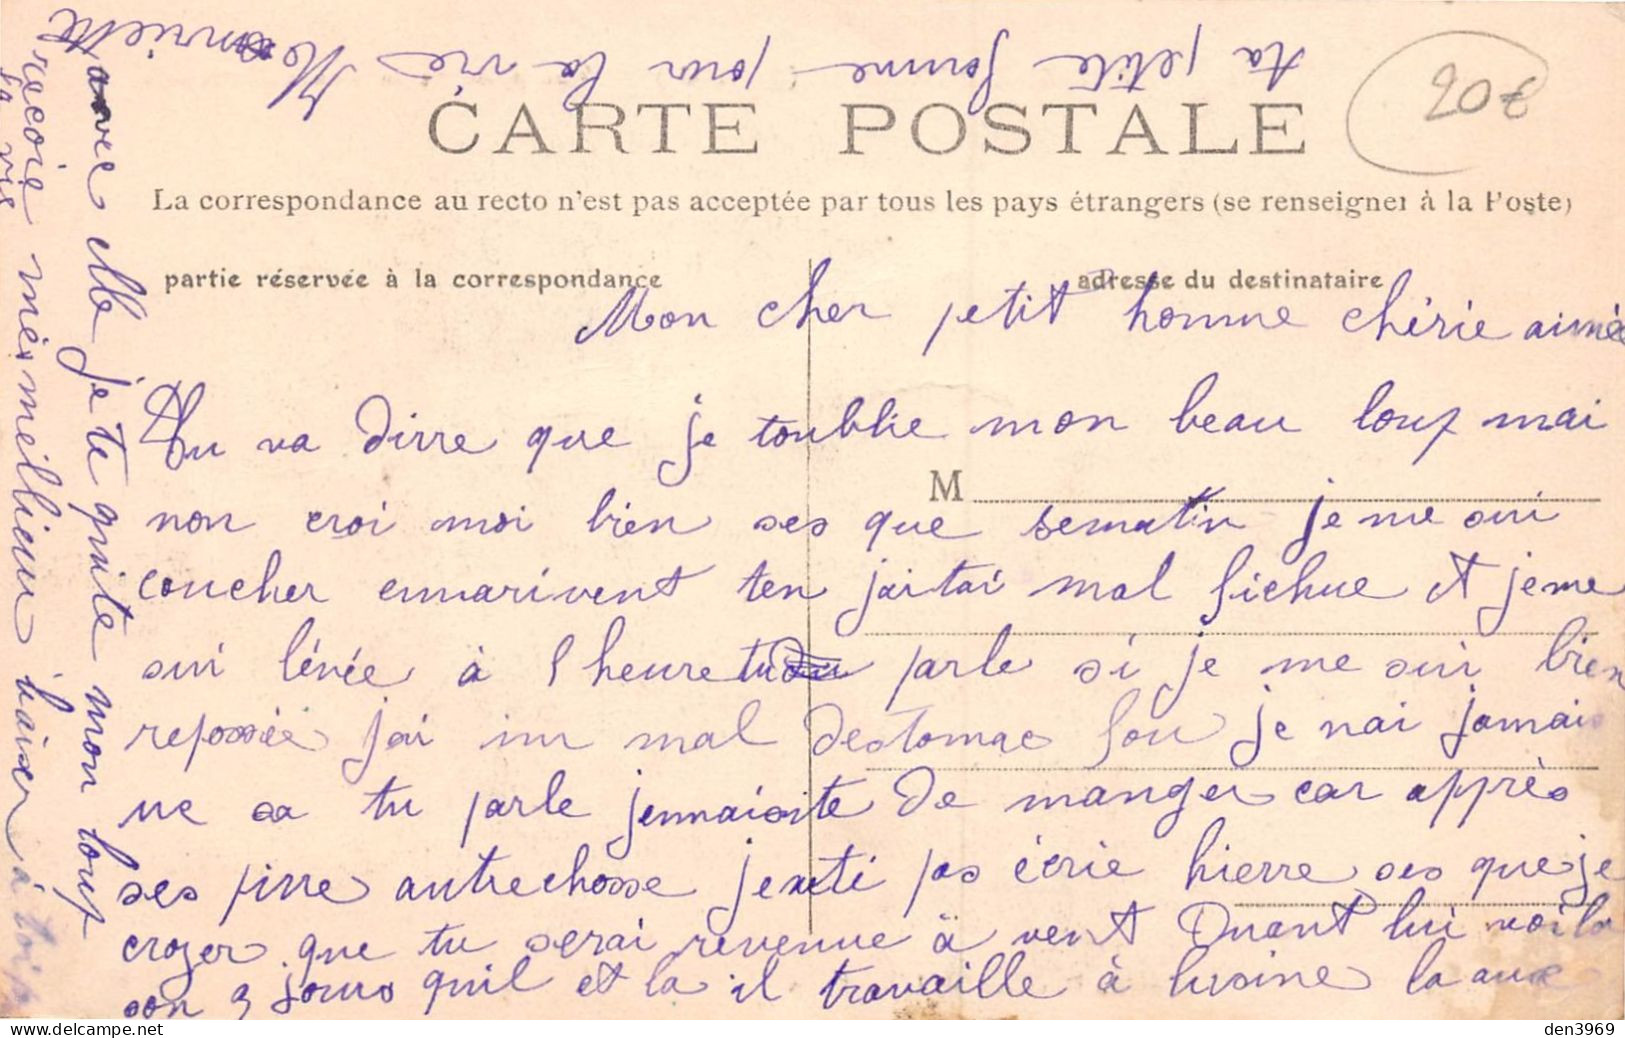 CARTE POSTALE
20€
La correspondance au recto n'est pas acceptée par tous les pays étrangers (se renseigner à la Poste)
partie réservée à la correspondance
adresse du destinataire
M
Mon cher petit homme chérie aimée
Tu va dirre que je toublie mon beau loup mai
non croi moi bien ses que sematin je me sui
coucher ennarivent ten jaitai mal fichue et jeme
sui lévée à 1 heure tu parle si je me sui bien
repossée jai un mal destomac fou je nai jamais
ue sa tu parle jennaisite de manger car apprès
ses pirre autrechosse jexeti pas écrie hierre ses queje
croyer que tu serai revenue à vent Quant lui voila
son 3 jours quil et la il travaille à lusine la
avec elle je te quite mon loup
recoie mes meilleur baiser à toi p
la vie
ta petite femme pour la vie Henriette
den3969